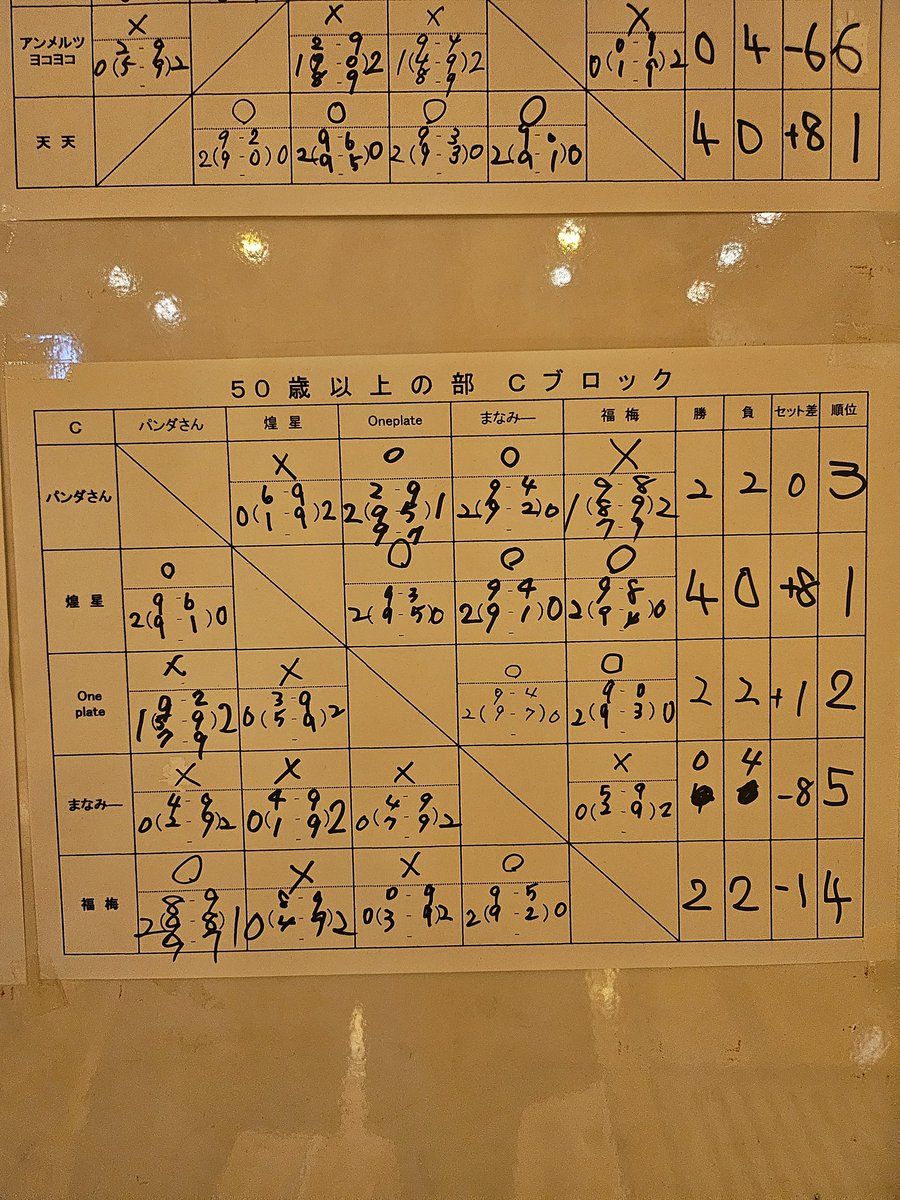 アンメルツ
ヨコヨコ
× × × ×
2 - 9
0(5 - 9)2
2 - 9
1(9 - 0)2
8 - 9
9 - 4
1(4 - 9)2
8 - 9
0 - 9
0(1 - 9)2
0 4 -6 6
天天
○ ○ ○ ○
9 - 2
2(9 - 0)0
9 - 6
2(9 - 5)0
9 - 3
2(9 - 3)0
2(9 - 1)0
4 0 +8 1
50歳以上の部 Cブロック
C パンダさん 煌星 Oneplate まなみー 福梅 勝 負 セット差 順位
パンダさん
× ○ ○ ×
6 - 9
0(1 - 9)2
2 - 9
2(9 - 5)1
9 - 7
9 - 4
2(9 - 2)0
9 - 8
1(8 - 9)2
7 - 9
2 2 0 3
煌星
○ ○ ○ ○
9 - 6
2(9 - 1)0
9 - 3
2(9 - 5)0
9 - 4
2(9 - 1)0
9 - 8
2(9 - 4)0
4 0 +8 1
One
plate
× × ○ ○
9 - 2
1(5 - 9)2
7 - 9
3 - 9
0(5 - 9)2
9 - 4
2(9 - 7)0
9 - 0
2(9 - 3)0
2 2 +1 2
まなみー
× × × ×
4 - 9
0(2 - 9)2
4 - 9
0(1 - 9)2
4 - 9
0(7 - 9)2
5 - 9
0(2 - 9)2
0 4 -8 5
福梅
○ × × ○
8 - 9
2(9 - 8)1
9 - 7
8 - 9
0(4 - 9)2
0 - 9
0(3 - 9)2
9 - 5
2(9 - 2)0
2 2 -1 4